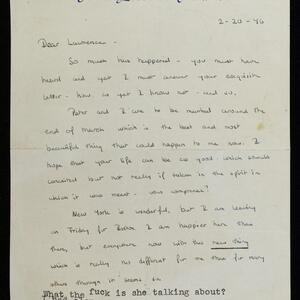 2-20-46
Dear Lawrence -
So much has happened - you must have
heard and yet I must answer your exquisite
letter - how, as yet I know not - and so,
Peter and I are to be married around the
end of March which is the best and most
beautiful thing that could happen to me now. I
hope that your life can be as good - which sounds
conceited but not really if taken in the spirit in
which it was meant - you comprenez?
New York is wonderful, but I am leaving
on Friday for I am happier here than
there, but everywhere now with this new thing
which is really no different for me than for many
others though it seems so
What the fuck is she talking about?